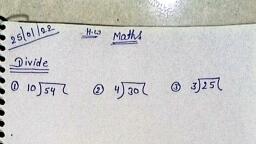 25/01/22 H.W Maths
Divide
① 10)54( ② 4)30( ③ 3)25(